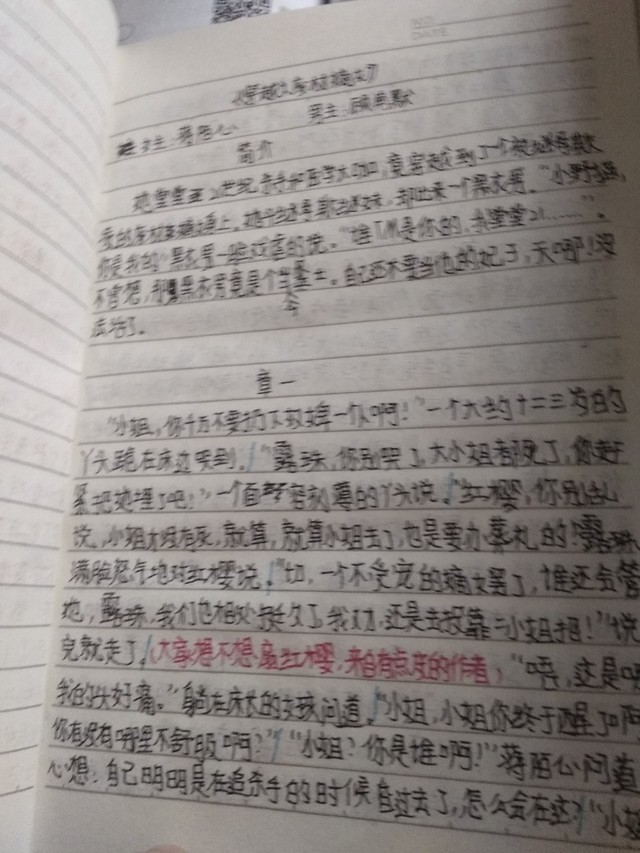 NO.
DATE
女主:蒋陌心 男主:顾
简介
她堂堂亚21世纪杀手和医学大加,竟穿越到了一个
身上。却出来一个黑衣男。"小野猫,
你是我的"黑衣男一脸戏虐的说。"谁TM是你的,我堂堂21……"。
不曾想,那黑衣男竟是个当今皇上。自己还不要当他的妃子,天哪!没
法活了。
章一
"小姐,你千万不要扔下奴婢一个人啊!"一个大约十二三岁的
丫头跪在床边哭到。"露珠,你别哭了,大小姐都死了,你赶
紧把她埋了吧!"一个面容刻薄的丫头说。"红樱,你别乱
说,小姐才没有死,就算,就算小姐去了,也是要办葬礼的!"露珠
满脸怒气地对红樱说。"切,一个不受宠的嫡女罢了,谁还会管
她,露珠,我们也相处挺久了,我劝,还是去投靠二小姐把!"说
完就走了。(大家想不想扇红樱,来自有点皮的作者)"唔,这是哪
我的头好痛。"躺在床上的女孩问道。"小姐,小姐你终于醒了啊
你有没有哪里不舒服啊?""小姐?你是谁啊!"蒋陌心问道
心想:自己明明是在追杀手的时候昏过去了,怎么会在这?"小姐